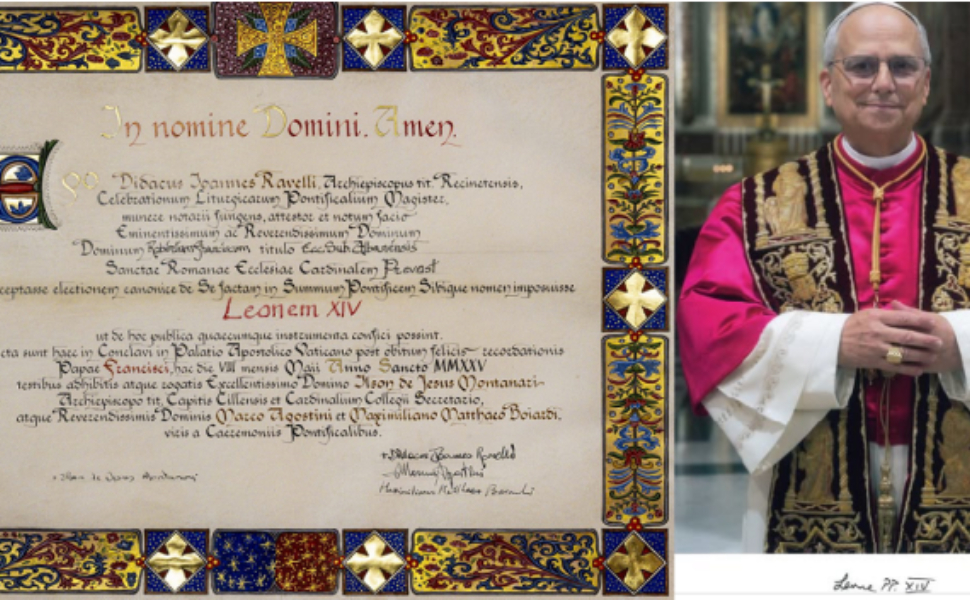 In nomine Domini. Amen.
Ego Didacus Joannes Ravelli, Archiepiscopus tit. Recinetensis,
Celebrationum Liturgicarum Pontificalium Magister,
munere notarii fungens, attestor et notum facio
Eminentissimum ac Reverendissimum Dominum
Dominum titulo Ecc. Sub. Albanensis
Sanctae Romanae Ecclesiae Cardinalem Prevost
ceptasse electionem canonice de Se factam in Summum Pontificem Sibique nomen imposuisse
Leonem XIV
ut de hoc publica quaecumque instrumenta confici possint.
cta sunt haec in Conclavi in Palatio Apostolico Vaticano post obitum felicis recordationis
Papae Francisci, hac die VIII mensis Maii Anno Sancto MMXXV
testibus adhibitis atque rogatis Excellentissimo Domino Ilson de Jesus Montanari
Archiepiscopo tit. Capitis Cillensis et Cardinalium Collegii Secretario,
atque Reverendissimis Dominis Marco Agostini et Maximiliano Matthaeo Boiardi,
viris a Caeremoniis Pontificalibus.
Leone PP. XIV